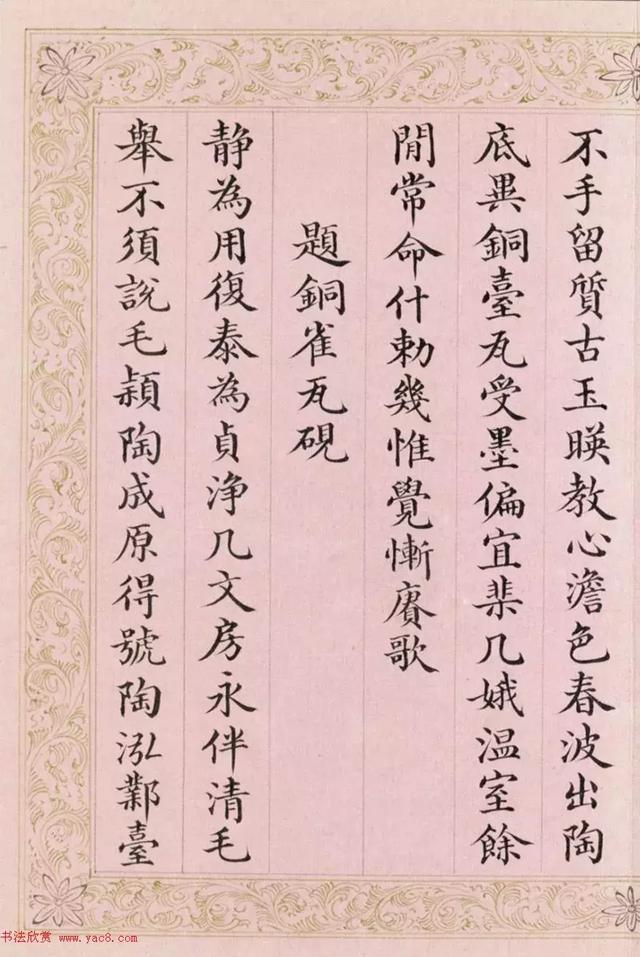 不手留質古玉暎教心澹色春波出陶
底異銅臺瓦受墨偏宜棐几娥温室餘
閒常命什勅幾惟覺慚賡歌
題銅雀瓦硯
静為用復泰為貞浄几文房永伴清毛
舉不須說毛穎陶成原得號陶泓鄴臺
书法欣赏 www.yac8.com